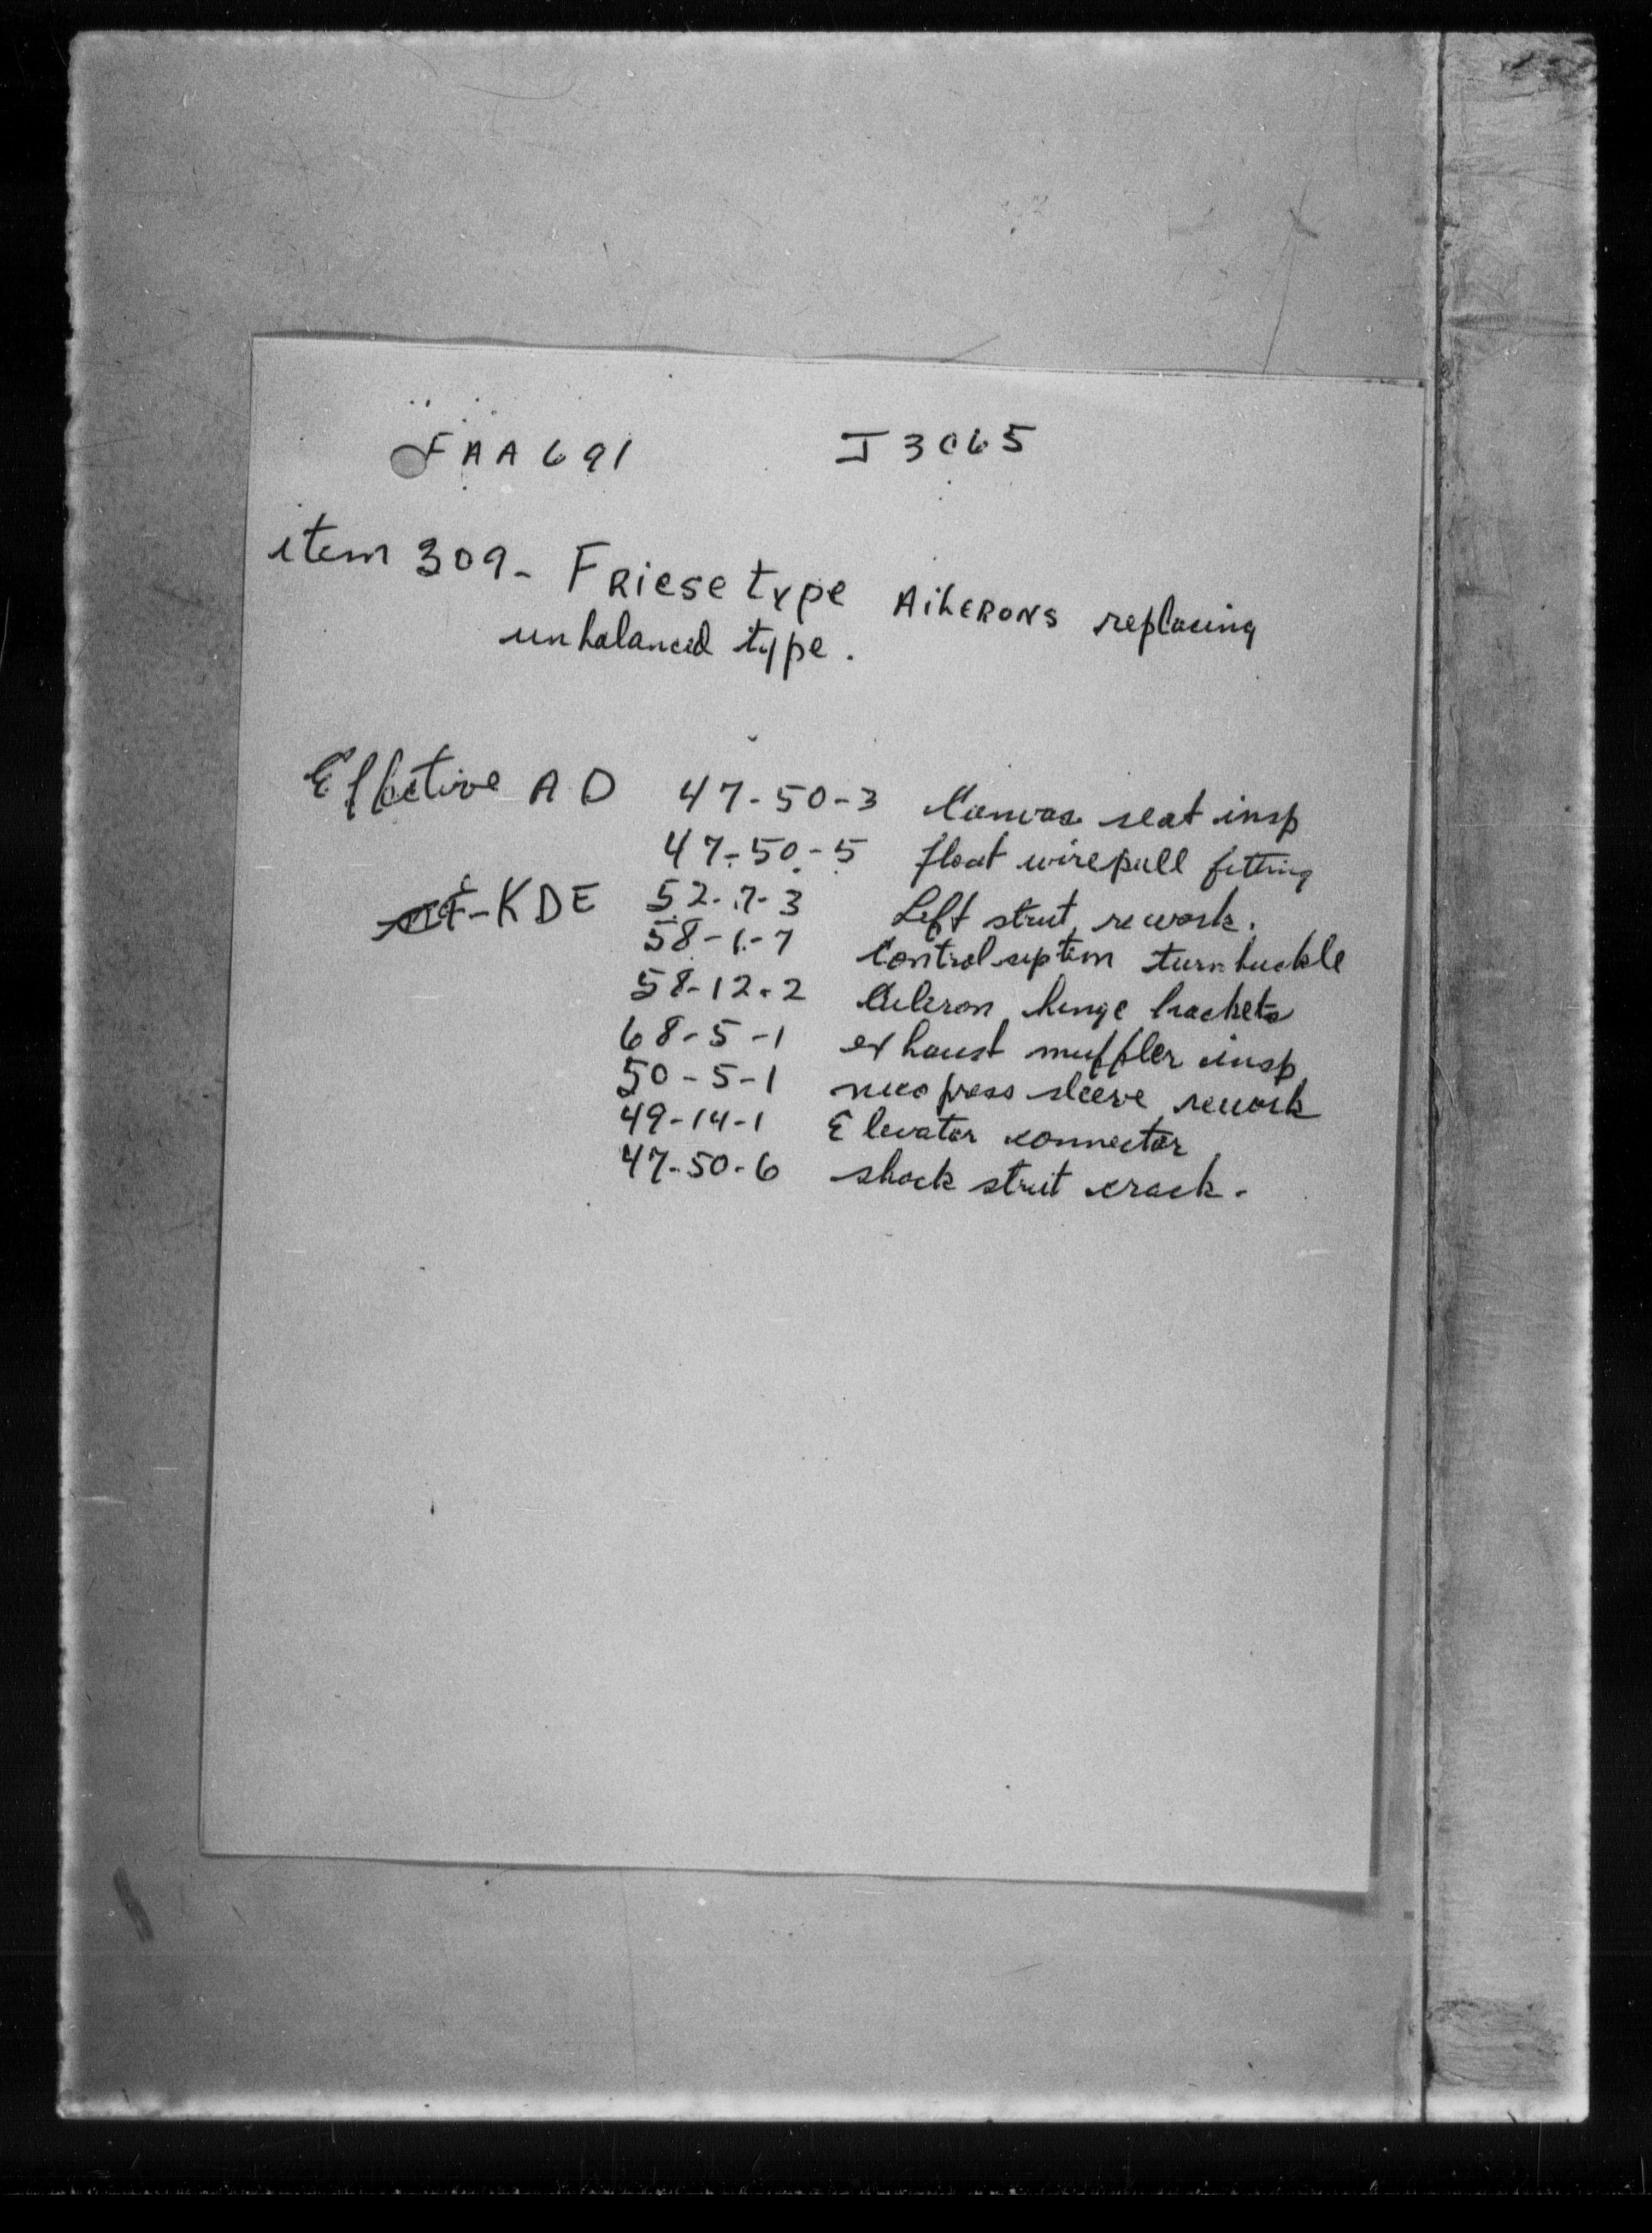 FAA 691 J3C65
item 309 - FRiese type AiLERONS replacing
unbalanced type.
Effective AD 47-50-3 Canvas seat insp
47-50-5 float wirepull fitting
CF-KDE 52-.7-3 Left strut rework.
58-1-7 Control system turnbuckle
58-12-2 Aileron hinge brackets
68-5-1 exhaust muffler insp
50-5-1 nico press sleeve rework
49-14-1 Elevator connector
47-50-6 shock strut crack.